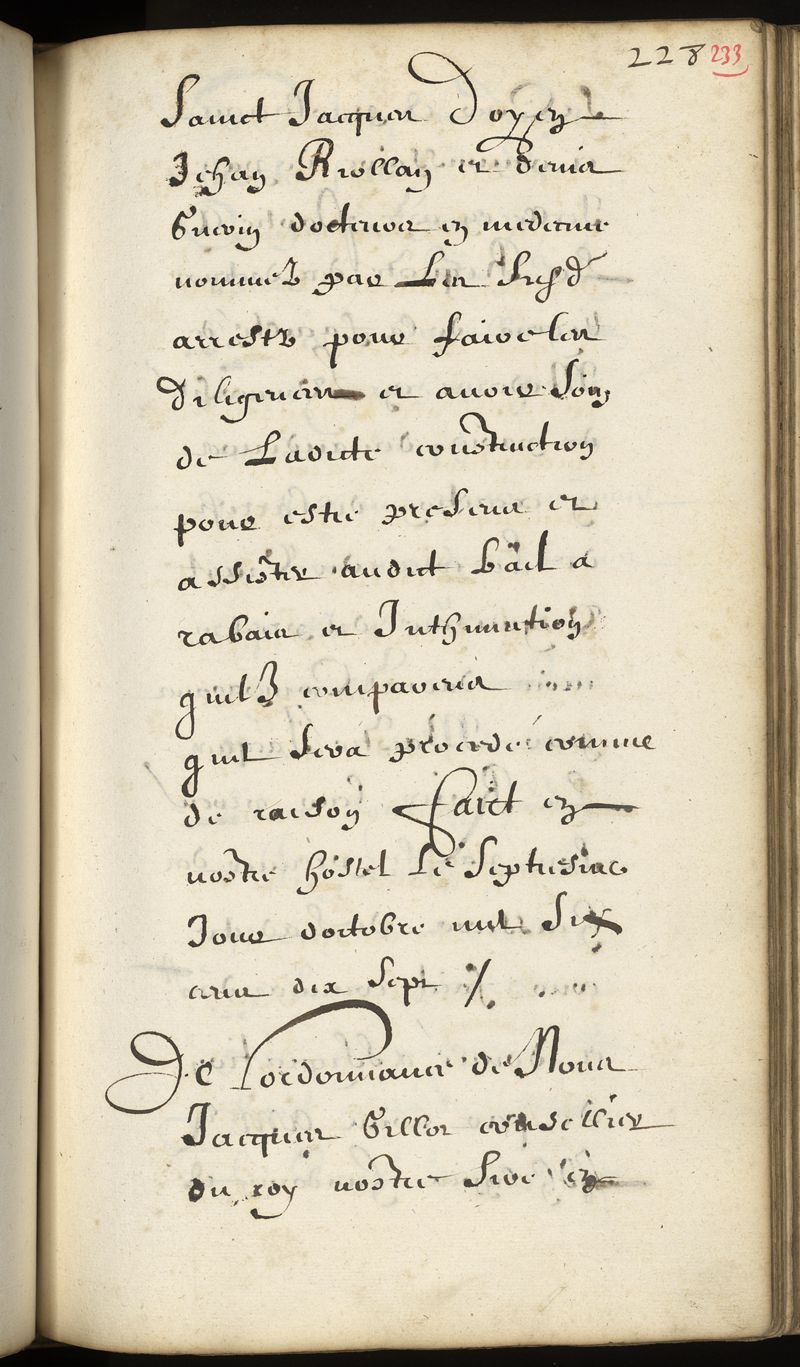 228 233
Sainct Jacques Doyen
Jehan Riollan et Denis
Guerin docteurs en medecine
nommez par Les Susd
arrestz pour faire les
Diligences et avoir Soin
de Ladicte construction
pour estre presens et
assister audict bail a
rabais et Inthimation
quilz comparens
quil Sera procedé comme
de raison faict en
nostre hostel Le Septiesme
Jour doctobre mil Six
cens dix Sept /.
De Lordonnance de Nous
Jacques Gillot conseillier
du roy nostre Sire en